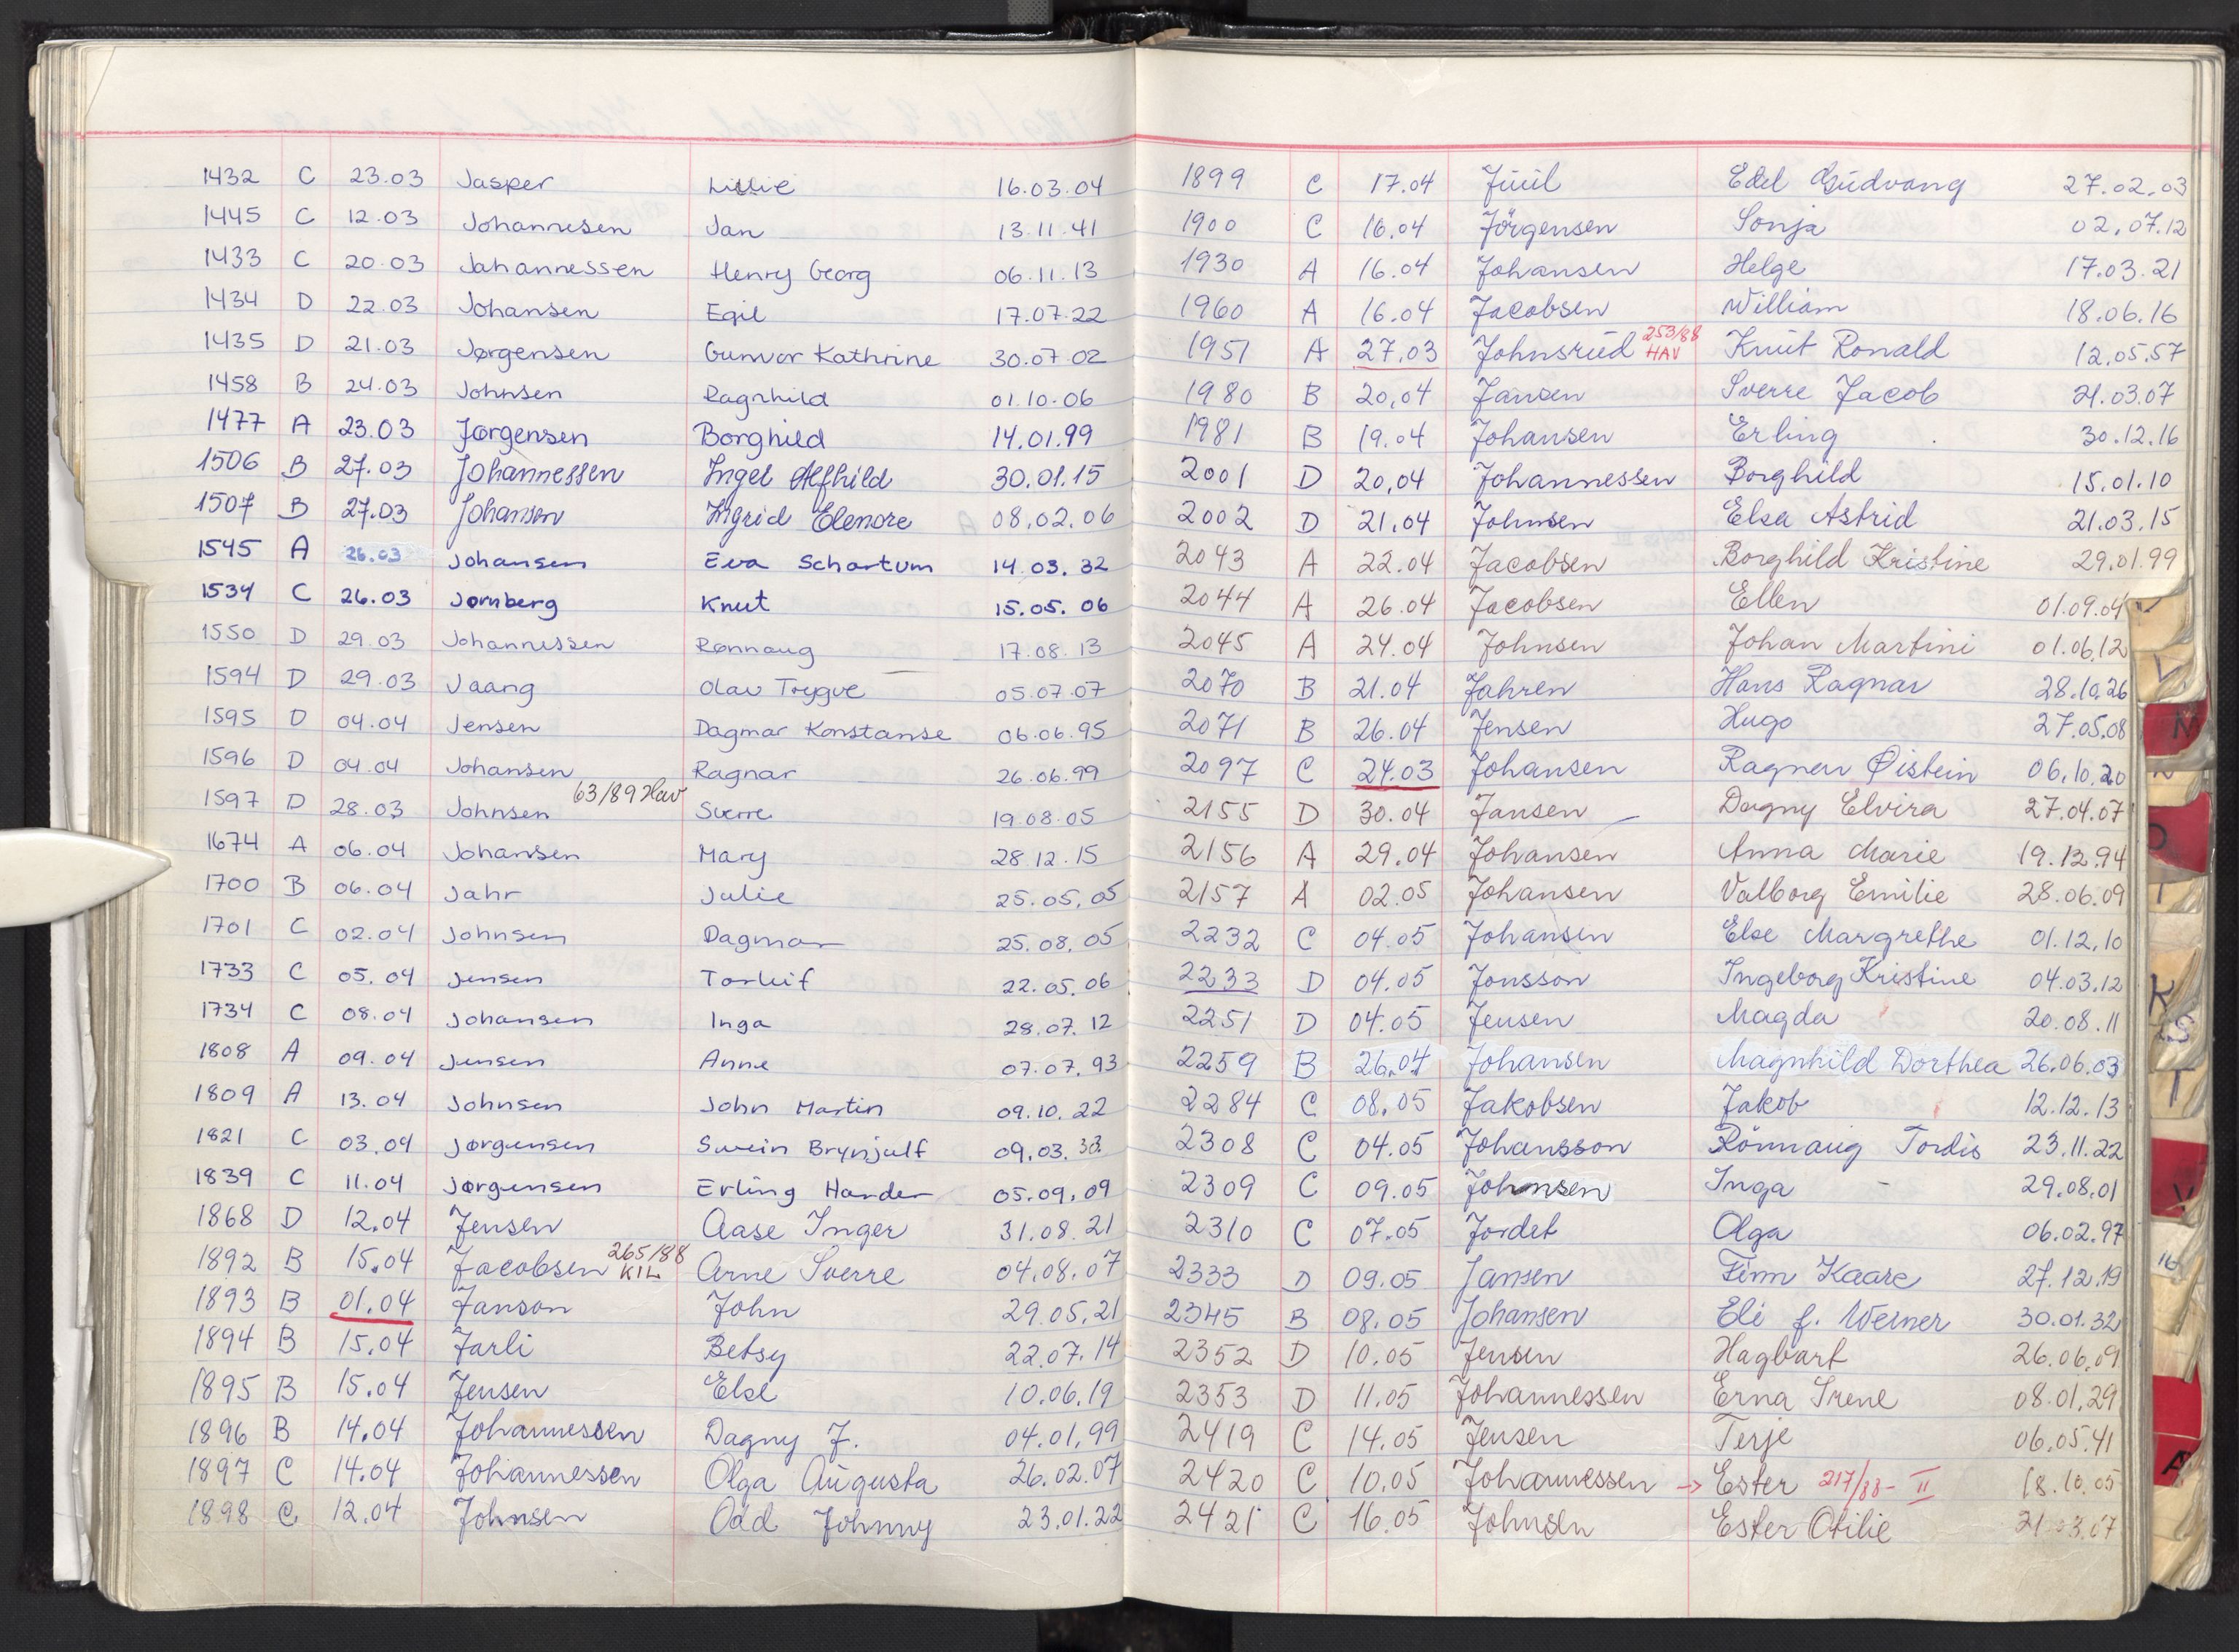 1432 C 23.03 Jasper Lillie 16.03.04
1445 C 12.03 Johannesen Jan 13.11.41
1433 C 20.03 Johannessen Henry Georg 06.11.13
1434 D 22.03 Johansen Egil 17.07.22
1435 D 21.03 Jørgensen Gunvor Kathrine 30.07.02
1458 B 24.03 Johnsen Ragnhild 01.10.06
1477 A 23.03 Jørgensen Borghild 14.01.99
1506 B 27.03 Johannessen Ingel Alfhild 30.01.15
1507 B 27.03 Johanson Ingrid Elenore 08.02.06
1545 A 26.03 Johansen Eva Schartum 14.03.32
1534 C 26.03 Jornberg Knut 15.05.06
1550 D 29.03 Johannessen Rønnaug 17.08.13
1594 D 29.03 Jaang Olav Trygve 05.07.07
1595 D 04.04 Jensen Dagmar Konstanse 06.06.95
1596 D 04.04 Johansen Ragnar 26.06.99
1597 D 28.03 Johnsen 63/89 Hav Sverre 19.08.05
1674 A 06.04 Johansen Mary 28.12.15
1700 B 06.04 Jahr Julie 25.05.05
1701 C 02.04 Johnsen Dagmar 25.08.05
1733 C 05.04 Jensen Torleif 22.05.06
1734 C 08.04 Johansen Inga 28.07.12
1808 A 09.04 Jensen Anne 07.07.93
1809 A 13.04 Johnsen John Martin 09.10.22
1821 C 03.04 Jørgensen Svein Brynjulf 09.03.33
1839 C 11.04 Jørgensen Erling Harder 05.09.09
1868 D 12.04 Jensen Aase Inger 31.08.21
1892 B 15.04 Jacobsen 265/88 KIL Arne Sverre 04.08.07
1893 B 01.04 Janson John 29.05.21
1894 B 15.04 Jarli Betsy 22.07.14
1895 B 15.04 Jensen Else 10.06.19
1896 B 14.04 Johannessen Dagny J. 04.01.99
1897 C 14.04 Johannessen Olga Augusta 26.02.07
1898 C 12.04 Johnsen Odd Johnny 23.01.22
1899 C 17.04 Juul Edel Gudvang 27.02.03
1900 C 16.04 Jörgensen Sonja 02.07.12
1930 A 16.04 Johansen Helge 17.03.21
1960 A 16.04 Jacobsen William 18.06.16
1951 A 27.03 Johnsrud 253/88 HAV Knut Ronald 12.05.57
1980 B 20.04 Jansen Sverre Jacob 21.03.07
1981 B 19.04 Johansen Erling 30.12.16
2001 D 20.04 Johannessen Borghild 15.01.10
2002 D 21.04 Johnsen Elsa Astrid 21.03.15
2043 A 22.04 Jacobsen Borghild Kristine 29.01.99
2044 A 26.04 Jacobsen Ellen 01.09.04
2045 A 24.04 Johnsen Johan Martini 01.06.12
2070 B 21.04 Jahren Hans Ragnar 28.10.26
2071 B 26.04 Jensen Hugo 27.05.08
2097 C 24.03 Johansen Ragnar Øistein 06.10.20
2155 D 30.04 Jansen Dagny Elvira 27.04.07
2156 A 29.04 Johansen Anna Marie 19.12.94
2157 A 02.05 Johansen Valborg Emilie 28.06.09
2232 C 04.05 Johansen Else Margrethe 01.12.10
2233 D 04.05 Jonsson Ingeborg Kristine 04.03.12
2251 D 04.05 Jensen Magda 20.08.11
2259 B 26.04 Johansen Magnhild Dorthea 26.06.03
2284 C 08.05 Jakobsen Jakob 12.12.13
2308 C 04.05 Johansson Rönnaug Tordis 23.11.22
2309 C 09.05 Johansen Inga 29.08.01
2310 C 07.05 Jordet Olga 06.02.97
2333 D 09.05 Jansen Finn Kaare 27.12.19
2345 B 08.05 Johansen Eli f. Werner 30.01.32
2352 D 10.05 Jensen Hagbart 26.06.09
2353 D 11.05 Johannessen Erna Irene 08.01.29
2419 C 14.05 Jensen Terje 06.05.41
2420 C 10.05 Johannessen → Ester 217/88 - II 18.10.05
2421 C 16.05 Johnsen Ester Otilie 21.03.07